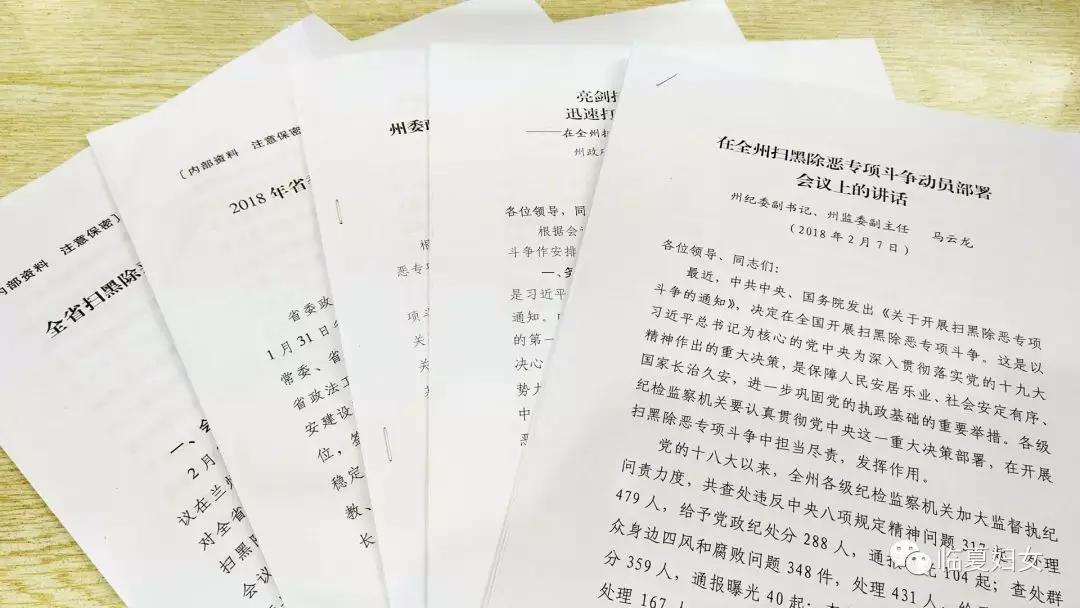 内部资料 注意保密〕
全省扫黑除恶
一、会
2月
议在兰州
对全省
扫黑除
会议
〔内部资料 注意保密
2018年省
省委政
1月31日
常委、省
省政法
安建设
位,签
稳定
教、
长
州委政
根
恶专项
项斗
关
关
共
亮剑扫
迅速打
——在全州扫
州政
各位领导,同
根据会
斗争作安排
一、
是习近平
通知。
的第一
决心
势力
中
恶
在全州扫黑除恶专项斗争动员部署
会议上的讲话
州纪委副书记、州监委副主任 马云龙
(2018年2月7日)
各位领导、同志们:
最近,中共中央、国务院发出《关于开展扫黑除恶专项
斗争的通知》,决定在全国开展扫黑除恶专项斗争。这是以
习近平总书记为核心的党中央为深入贯彻落实党的十九大
精神作出的重大决策,是保障人民安居乐业、社会安定有序、
国家长治久安,进一步巩固党的执政基础的重要举措。各级
纪检监察机关要认真贯彻党中央这一重大决策部署,在开展
扫黑除恶专项斗争中担当尽责,发挥作用。
党的十八大以来,全州各级纪检监察机关加大监督执纪
问责力度,共查处违反中央八项规定精神问题317起,处理
479人,给予党政纪处分288人,通报曝光104起;查处群
众身边四风和腐败问题348件,处理431人,给
分359人,通报曝光40起;查
处理167人
临夏妇女